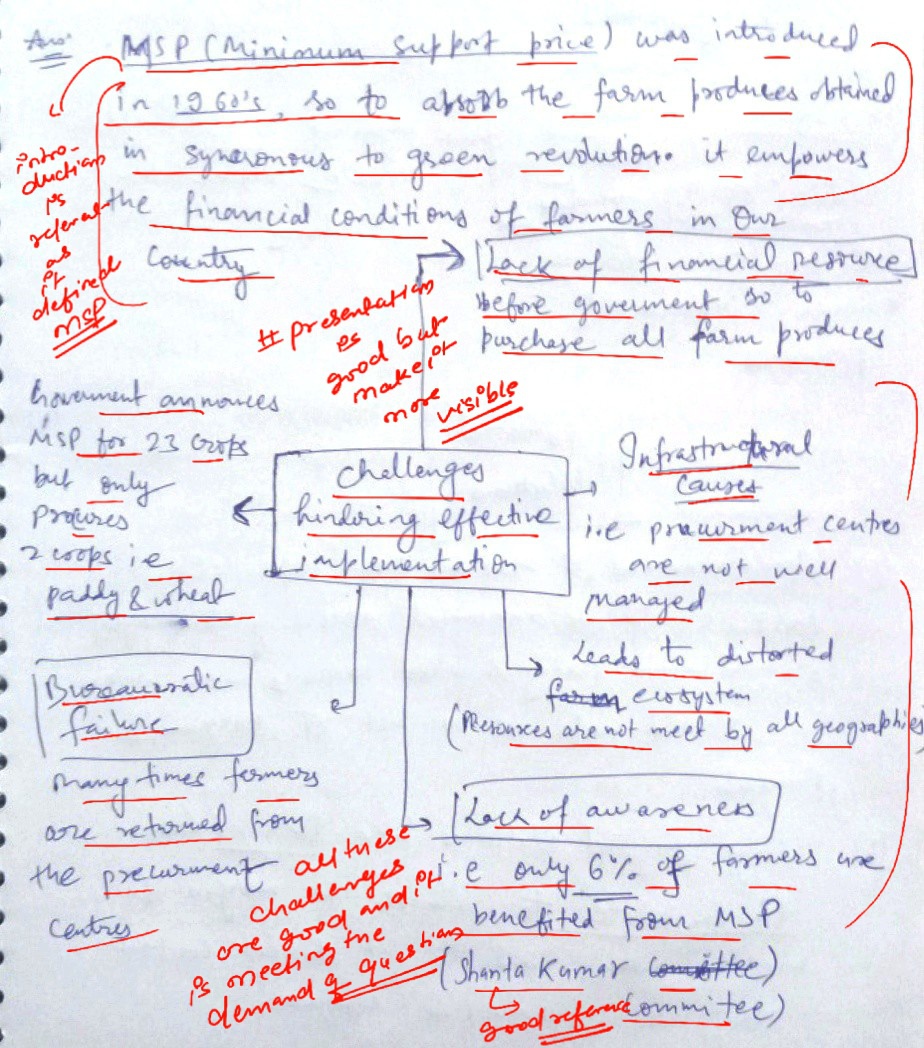 Ans:
MSP (Minimum support price) was introduced
in 1960's, so to absorb the farm produces obtained
in syncronous to green revolution. it empowers
the financial conditions of farmers in Our
Country
intro-
duction
is
referal
as
it
defined
MSP
Lack of financial resource
before goverment so to
purchase all farm produces
# presentation
is
good but
make it
more visible
Goverment announces
MSP for 23 crops
but only
procures
2 crops i.e
paddy & wheat
Challenges
hindering effective
implementation
Infrastructural
Causes
i.e procurment centres
are not well
managed
Leads to distorted
farm ecosystem
(Resources are not meet by all geographies)
Bureaucratic
failure
many times fermers
are returned from
the precurment
Centres
Lack of awareness
i.e only 6% of farmers are
benefited from MSP
(Shanta Kumar Comittee)
Committee)
good reference
all these
challenges
are good and it
is meeting the
demand of question